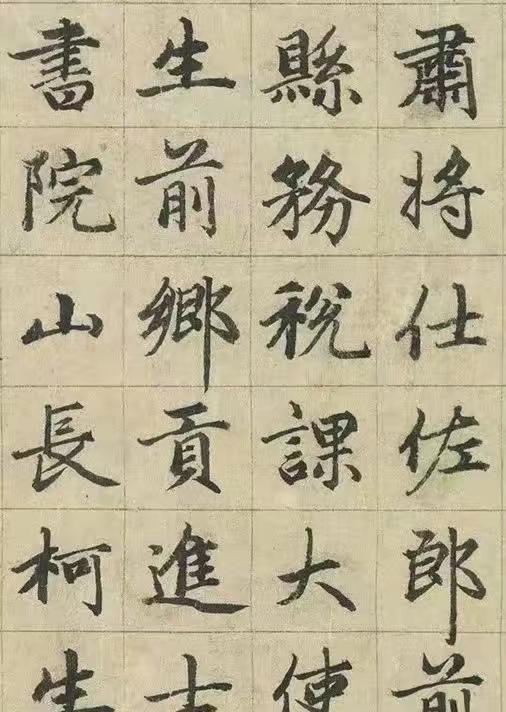 肅將仕佐郎前
縣務税課大使
生前鄉貢進士
書院山長柯生